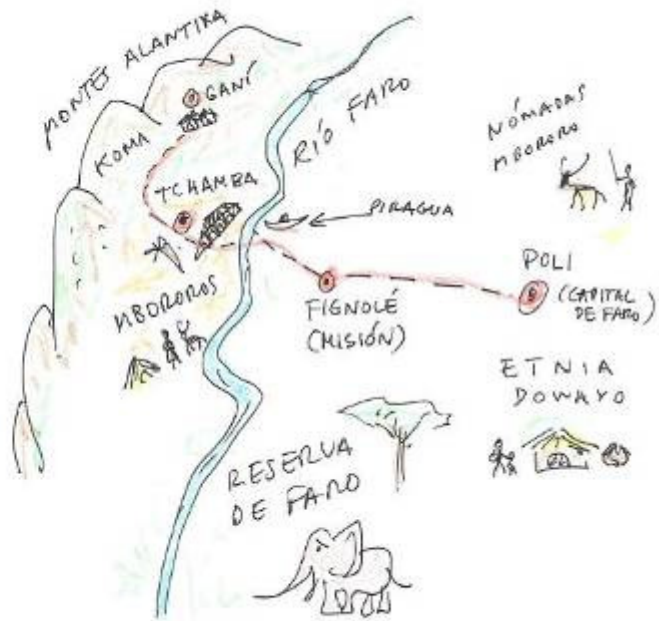 MONTES ALANTIKA
GANÍ
KOMA
RÍO FARO
NÓMADAS
MBORORO
TCHAMBA
PIRAGUA
MBOROROS
FIGNOLÉ
(MISIÓN)
POLI
(CAPITAL
DE FARO)
ETNIA
DOWAYO
RESERVA
DE FARO